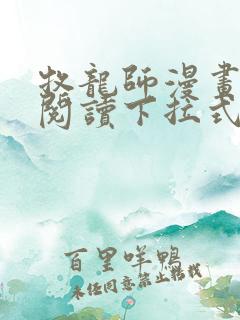 牧龍師漫畫
閱讀下拉式
百里咩鴨
未經同意禁止轉載